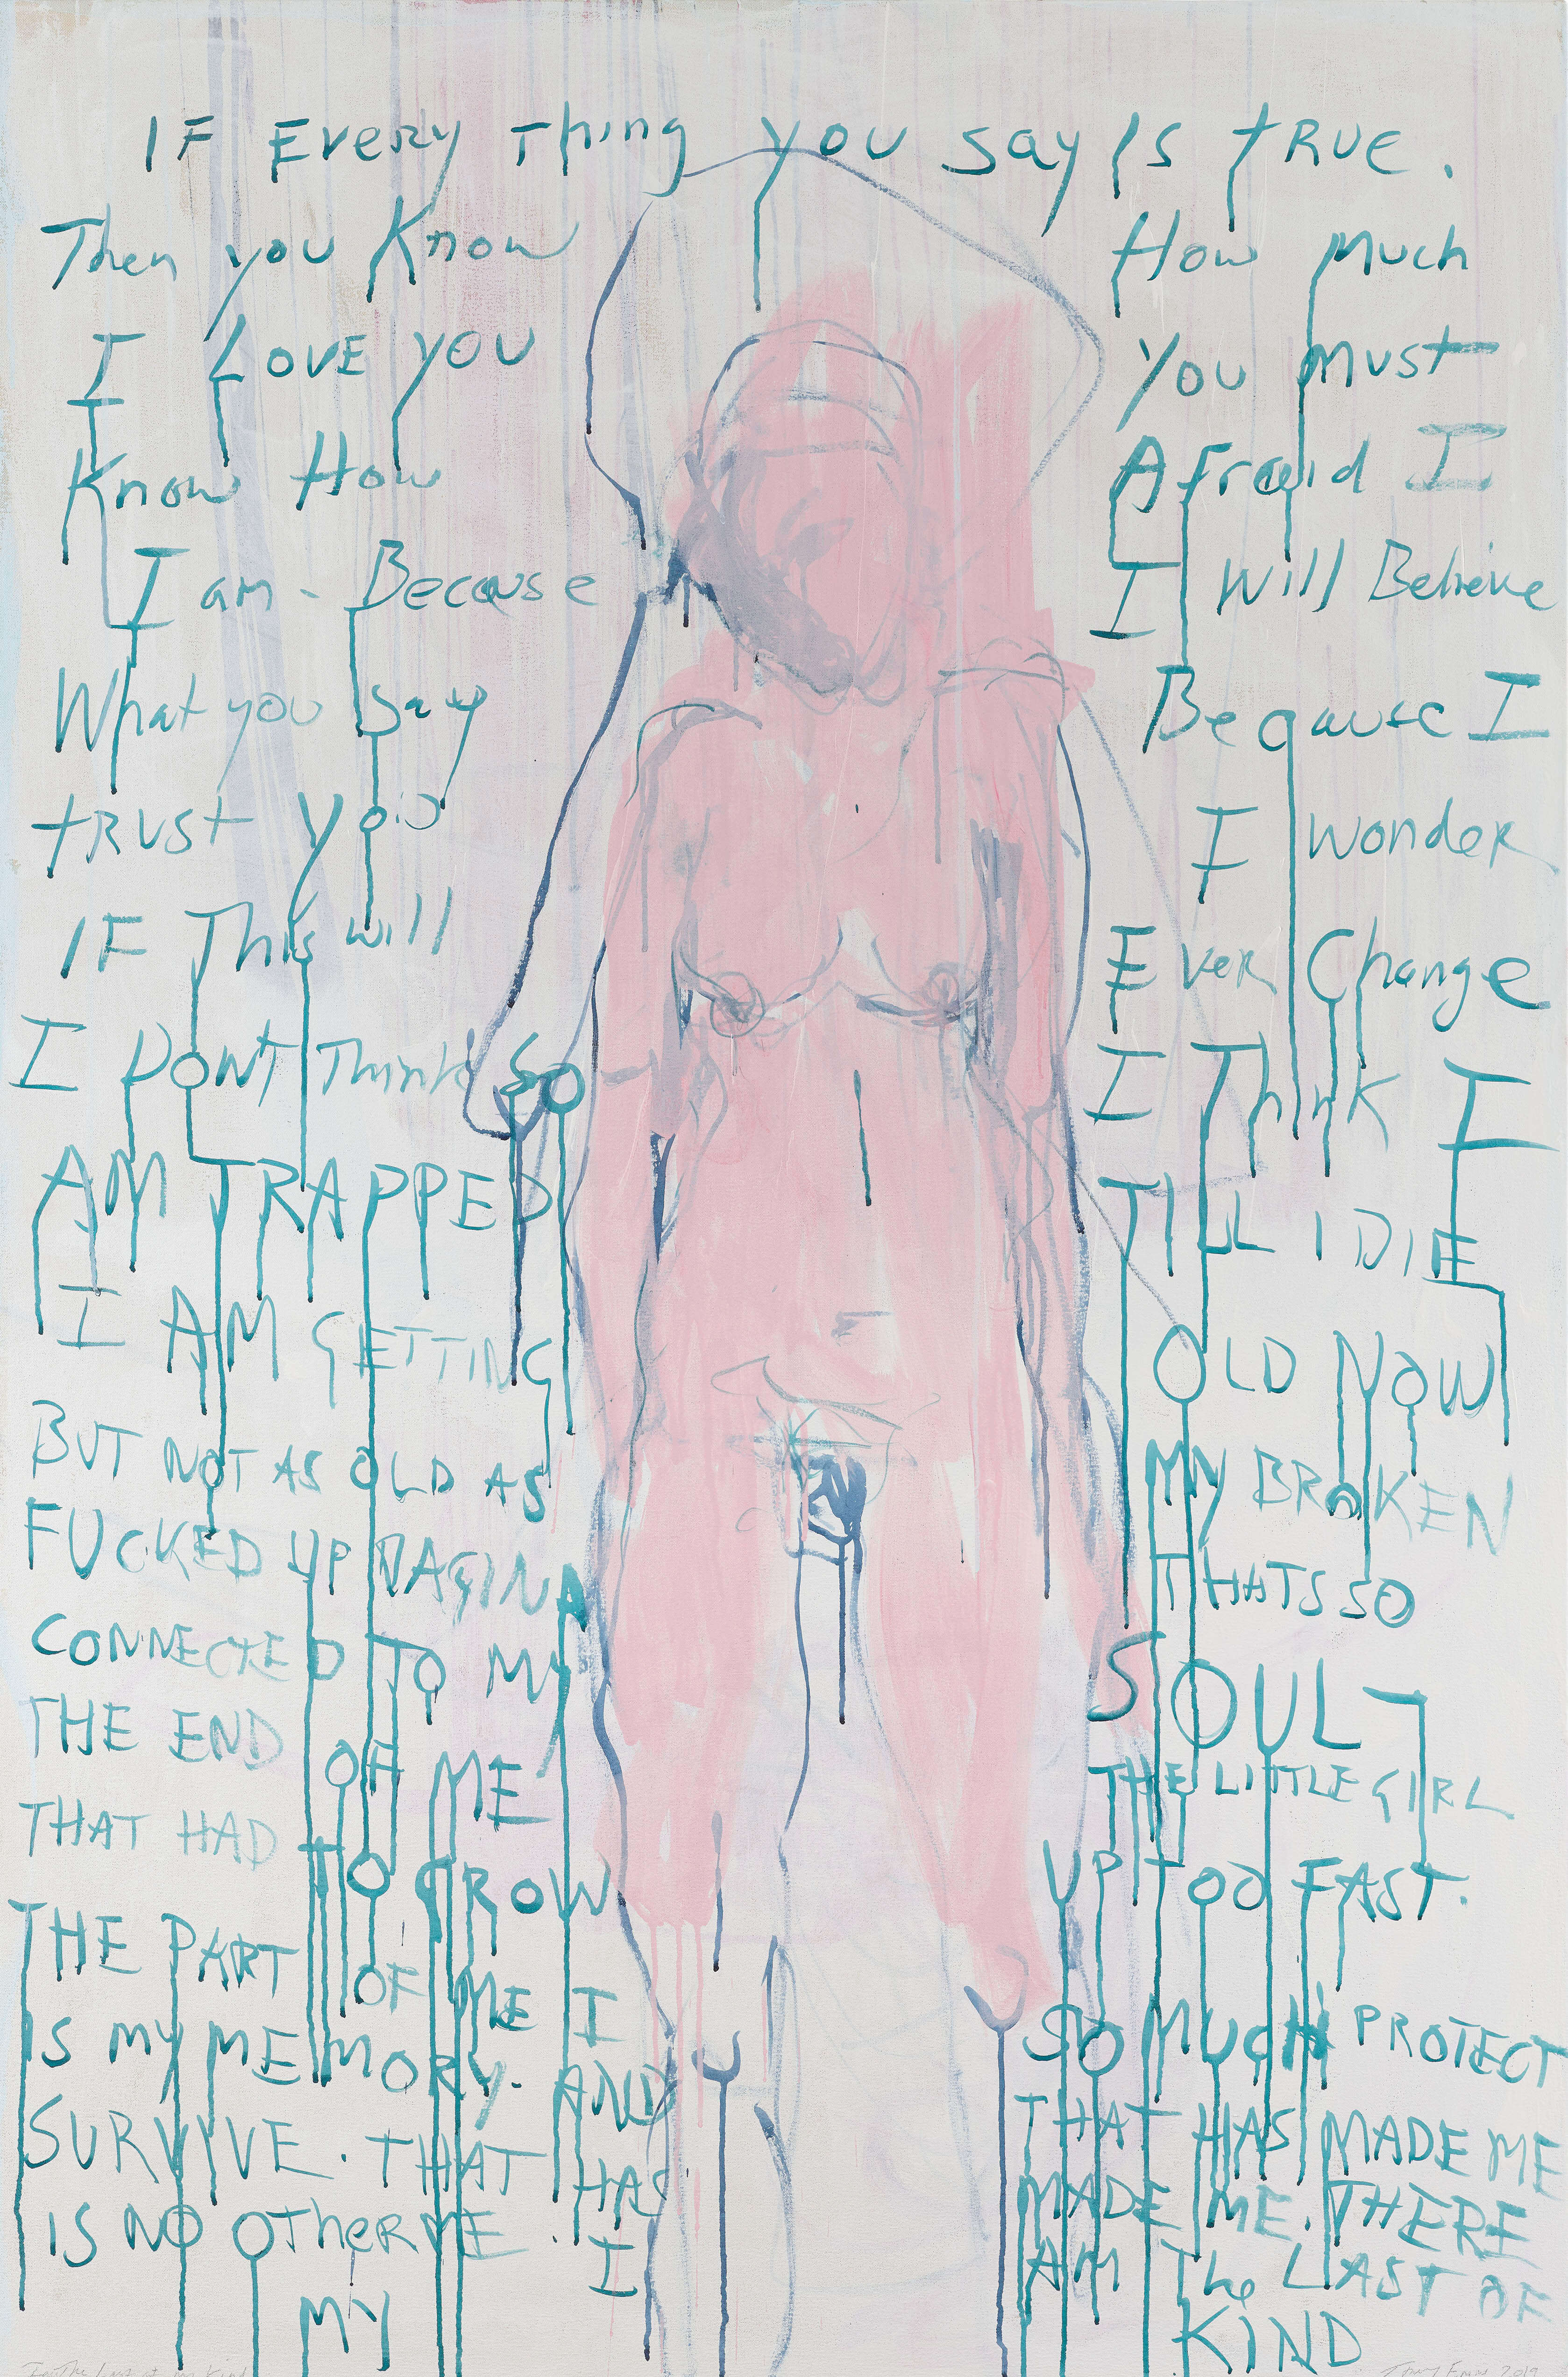 IF Every Thing you say Is tRUe.
Then you Know How Much
I LOVE YOU You Must
Know How Afraid I
I am - Because I Will Believe
What you say Because I
tRUst you I wonder
IF This will Ever Change
I Dont Think So I Think I
AM TRAPPED TILL I DIE
I AM GETTING OLD NOW
BUT NOT AS OLD AS MY BROKEN
FUCKED UP VAGINA THATS SO
CONNECTED TO MY SOUL -
THE END OF ME THE LITTLE GIRL
THAT HAD TO GROW UP TOO FAST.
THE PART OF ME I SO MUCH PROTECT
IS MY MEMORY. AND THAT HAS MADE ME
SURVIVE. THAT HAS MADE ME. THERE
IS NO OTHER ME. I AM The LAST OF
MY KIND
I am The Last of my Kind Tracey Emin 2019